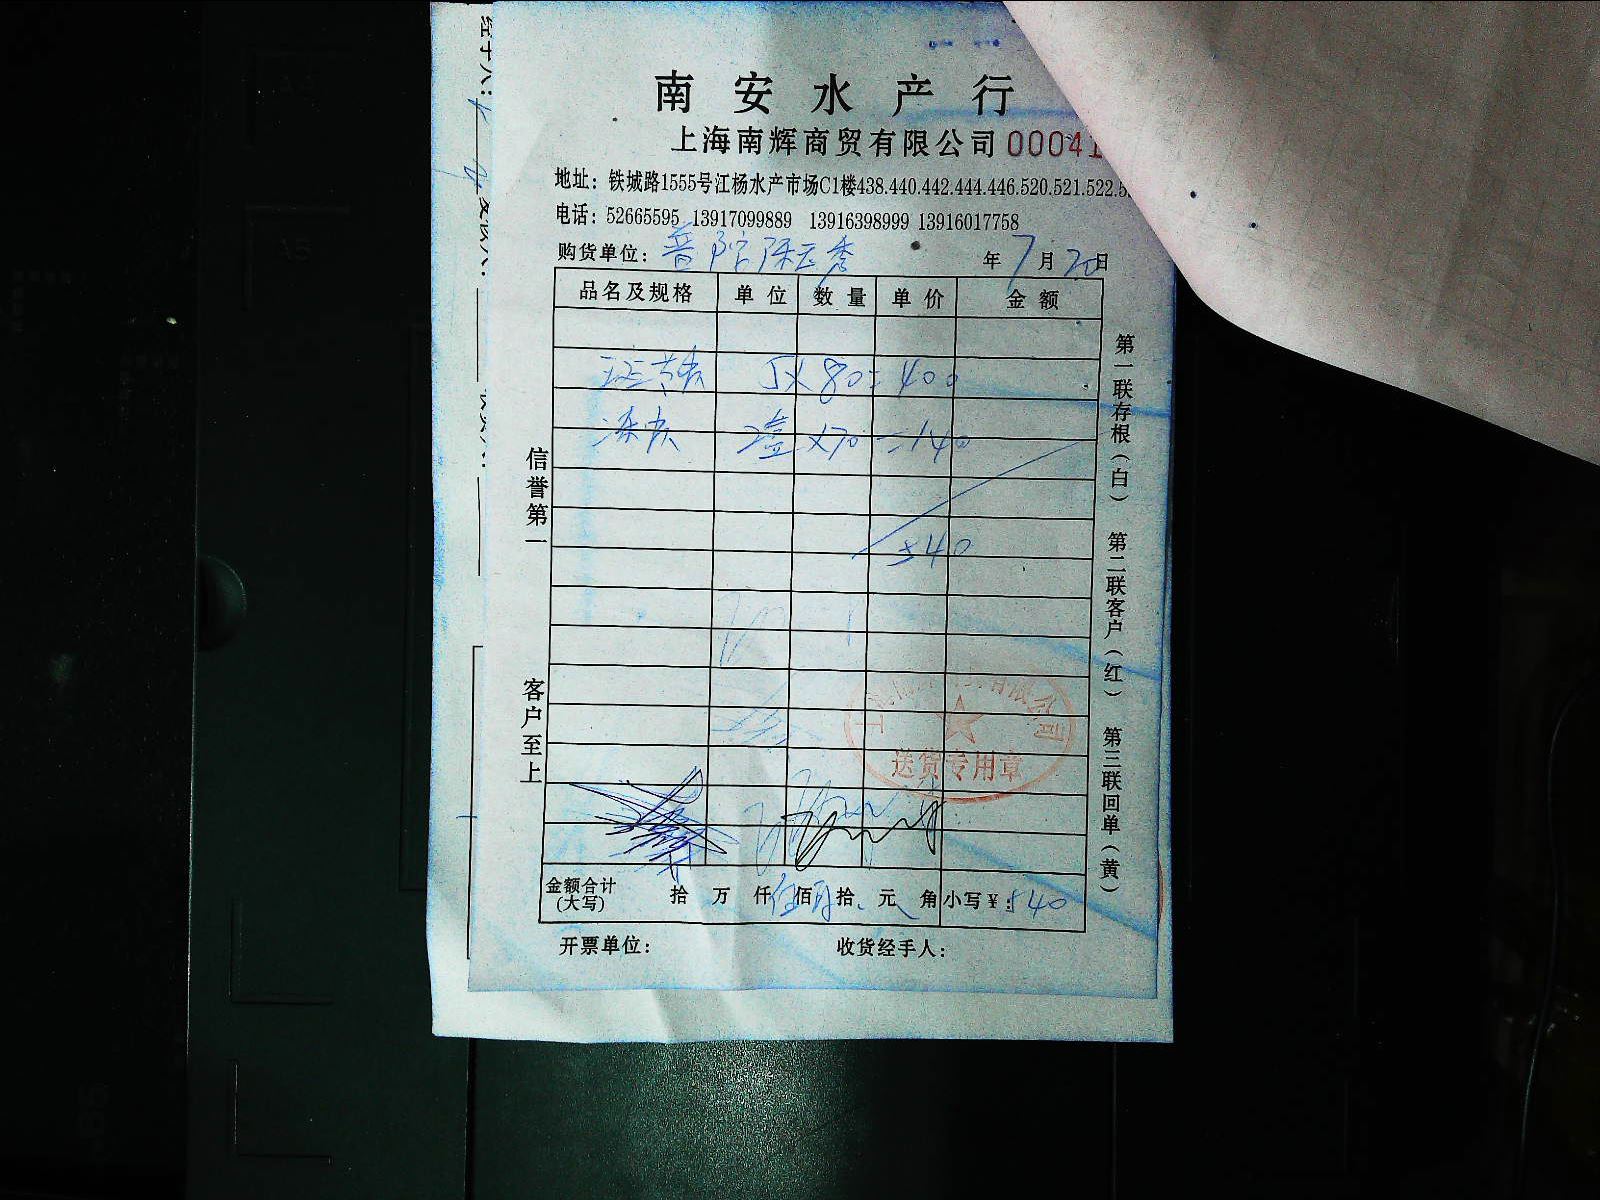 南安水产行
上海南辉商贸有限公司 00041
地址：铁城路1555号江杨水产市场C1楼438.440.442.444.446.520.521.522.5
电话：52665595 13917099889 13916398999 13916017758
购货单位：普陀 年7月20日
品名及规格 单位 数量 单价 金额
5×80=400
2盒×70=140
540
信誉第一
客户至上
第一联存根（白） 第二联客户（红） 第三联回单（黄）
有限公司
送货专用章
金额合计（大写） 拾 万 仟 伍佰 拾 元 角 小写￥：540
开票单位： 收货经手人：
经手人：